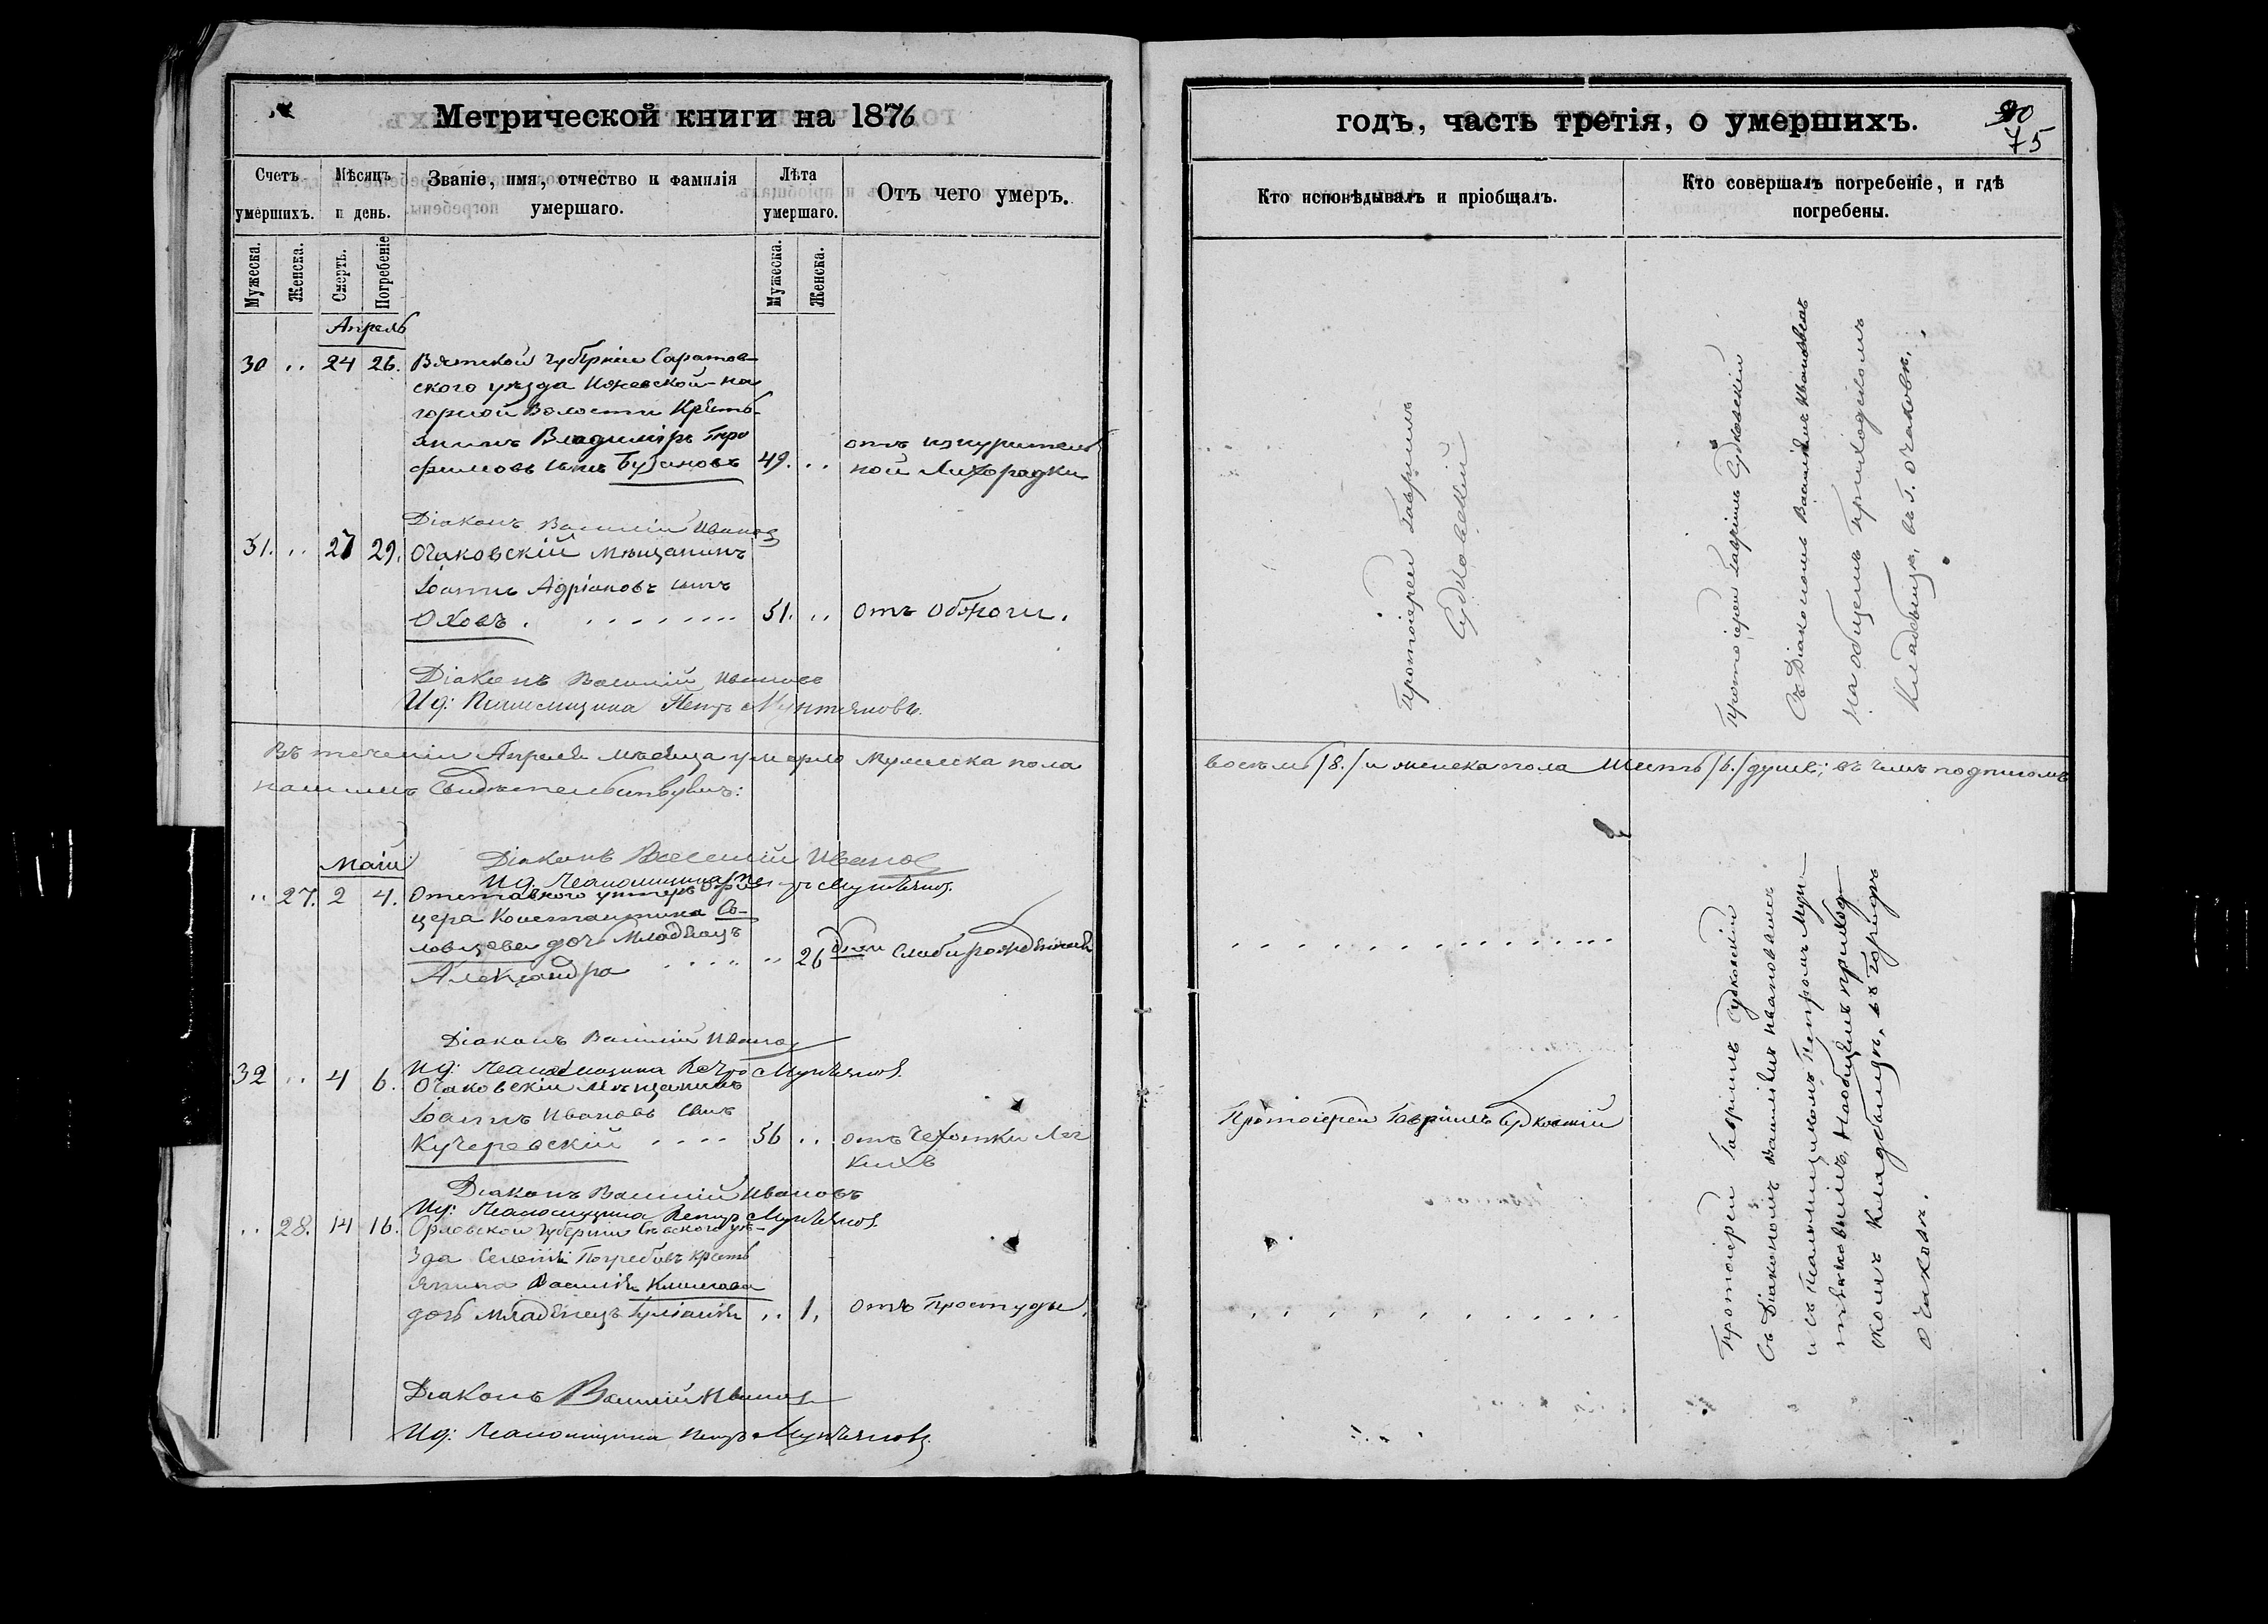 Метрической книги на 1876
Счетъ умершихъ.
Мѣсяцъ и день.
Званіе, имя, отчество и фамилія умершаго.
Лѣта умершаго.
Отъ чего умеръ.
Мужеска.
Женска.
Смерть.
Погребеніе
Мужеска.
Женска.
Апрель
30 .. 24 26. Вятской губерніи Саратов-
ского уѣзда Ижевской-на
горной Волости Кресть-
янинъ Владиміръ Тро
фимовъ сынъ Бузановъ 49. .. отъ изнурительной Лихорадки
Діаконъ Василій Ивановъ
31. .. 27 29. Очаковскій мѣщанинъ
Іоаннъ Адріановъ сынъ
Оховъ. 51. .. отъ
Діаконъ Василій Ивановъ
Ид: Псаломщика Петръ Мунтяновъ.
Въ теченіи Апреля мѣсяца умерло мужеска пола
нашимъ Свидѣтельствуемъ:
Діаконъ Василій Ивановъ
Ид. Псаломщика Петръ Мунтяновъ.
Маій
.. 27. 2 4. Отставного унтеръ офи-
цера Константина Со-
ловцова дочь Младенецъ
Александра .. 26 дней
Діаконъ Василій Ивановъ
Ид: Псаломщика Петръ Мунтяновъ.
32 .. 4 6. Очаковскій Мѣщанинъ
Іоаннъ Ивановъ сынъ
Кучеревскій 56 .. отъ Чехотки Лег
кихъ
Діаконъ Василій Ивановъ
Ид: Псаломщика Петръ Мунтяновъ.
.. 28. 14 16. Орловской губерніи Сѣвского уѣ-
зда Селенія Погребовъ кресть
янина Василія Климова
дочь младенецъ Іуліанія .. 1, отъ Простуды.
Діаконъ Василій Ивановъ
Ид: Псаломщика Петръ Мунтяновъ.
годъ, часть третія, о умершихъ.
90
75
Кто исповѣдывалъ и пріобщалъ.
Кто совершалъ погребеніе, и гдѣ погребены.
Протоіерей Гавріилъ
Судковскій
Протоіерей Гавріилъ Судковскій
Съ Діакономъ Василіемъ Ивановымъ
на общемъ приходскомъ
Кладбищѣ, въ г. Очаковѣ.
восемь /8./ и женска пола шесть /6./ душъ; въ чемъ подписомъ
Протоіерей Гавріилъ Судковскій
Протоіерей Гавріилъ Судковскій
Съ Діакономъ Василіемъ Ивановымъ
и съ псаломщикомъ Петромъ Мун-
тяновымъ, на общемъ приход-
скомъ кладбищѣ, въ городѣ
Очаковѣ.